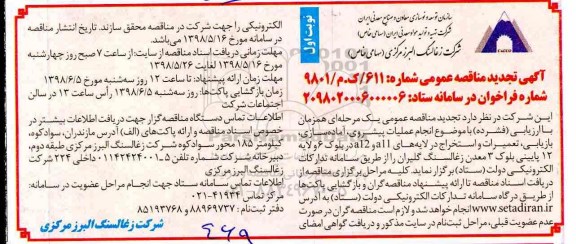 سازمان توسعه و نوسازی معادن و صنایع معدنی ایران
شرکت تهیه و تولید مواد معدنی ایران (سهامی خاص)
شرکت زغالسنگ البرز مرکزی (سهامی خاص)
نوبت اول
آگهی تجدید مناقصه عمومی شماره: ۶۱۱/ک.م/۹۸۰۱
شماره فراخوان در سامانه ستاد: ۲۰۹۸۰۲۰۰۰۶۰۰۰۰۰۶
این شرکت در نظر دارد تجدید مناقصه عمومی یک مرحله‌ای همزمان
با ارزیابی (فشرده) با موضوع انجام عملیات پیشروی، آماده‌سازی،
بازیابی، تعمیرات و استخراج در لایه‌های a11 و a12 در بلوک ۶ و لایه
۱۲ پایینی بلوک ۳ معدن زغالسنگ گلیران را از طریق سامانه تدارکات
الکترونیکی دولت (ستاد) برگزار نماید. کلیه مراحل برگزاری مناقصه از
دریافت اسناد مناقصه تا ارائه پیشنهاد مناقصه گران و بازگشایی پاکت‌ها
از طریق درگاه سامانه تدارکات الکترونیکی دولت (ستاد) به آدرس
www.setadiran.ir انجام خواهد شد و لازم است مناقصه گران در صورت
عدم عضویت قبلی، مراحل ثبت نام در سایت مذکور و دریافت گواهی امضای
الکترونیکی را جهت شرکت در مناقصه محقق سازند. تاریخ انتشار مناقصه
در سامانه مورخ ۱۳۹۸/۵/۱۶ می‌باشد.
مهلت زمانی دریافت اسناد مناقصه از سایت: از ساعت ۷ صبح روز چهارشنبه
مورخ ۱۳۹۸/۵/۱۶ لغایت ۱۳۹۸/۵/۲۶
مهلت زمانی ارائه پیشنهاد: تا ساعت ۱۲ روز سه‌شنبه مورخ ۱۳۹۸/۶/۵
زمان بازگشایی پاکت‌ها: روز سه‌شنبه ۱۳۹۸/۶/۵ رأس ساعت ۱۳ در سالن
اجتماعات شرکت
اطلاعات تماس دستگاه مناقصه گزار جهت دریافت اطلاعات بیشتر در
خصوص اسناد مناقصه و ارائه پاکت‌های (الف) آدرس مازندران، سوادکوه،
کیلومتر ۱۸۵ محور سوادکوه شرکت زغالسنگ البرز مرکزی طبقه دوم،
دبیرخانه شرکت شماره تلفن ۵-۰۱۱۴۲۴۲۴۰۰۱ داخلی ۲۲۴ شرکت
زغالسنگ البرز مرکزی
اطلاعات تماس سامانه ستاد جهت انجام مراحل عضویت در سامانه:
مرکز تماس ۴۱۹۳۴-۰۲۱
دفتر ثبت نام: ۸۸۹۶۹۷۳۷ و ۸۵۱۹۳۷۶۸
شرکت زغالسنگ البرز مرکزی